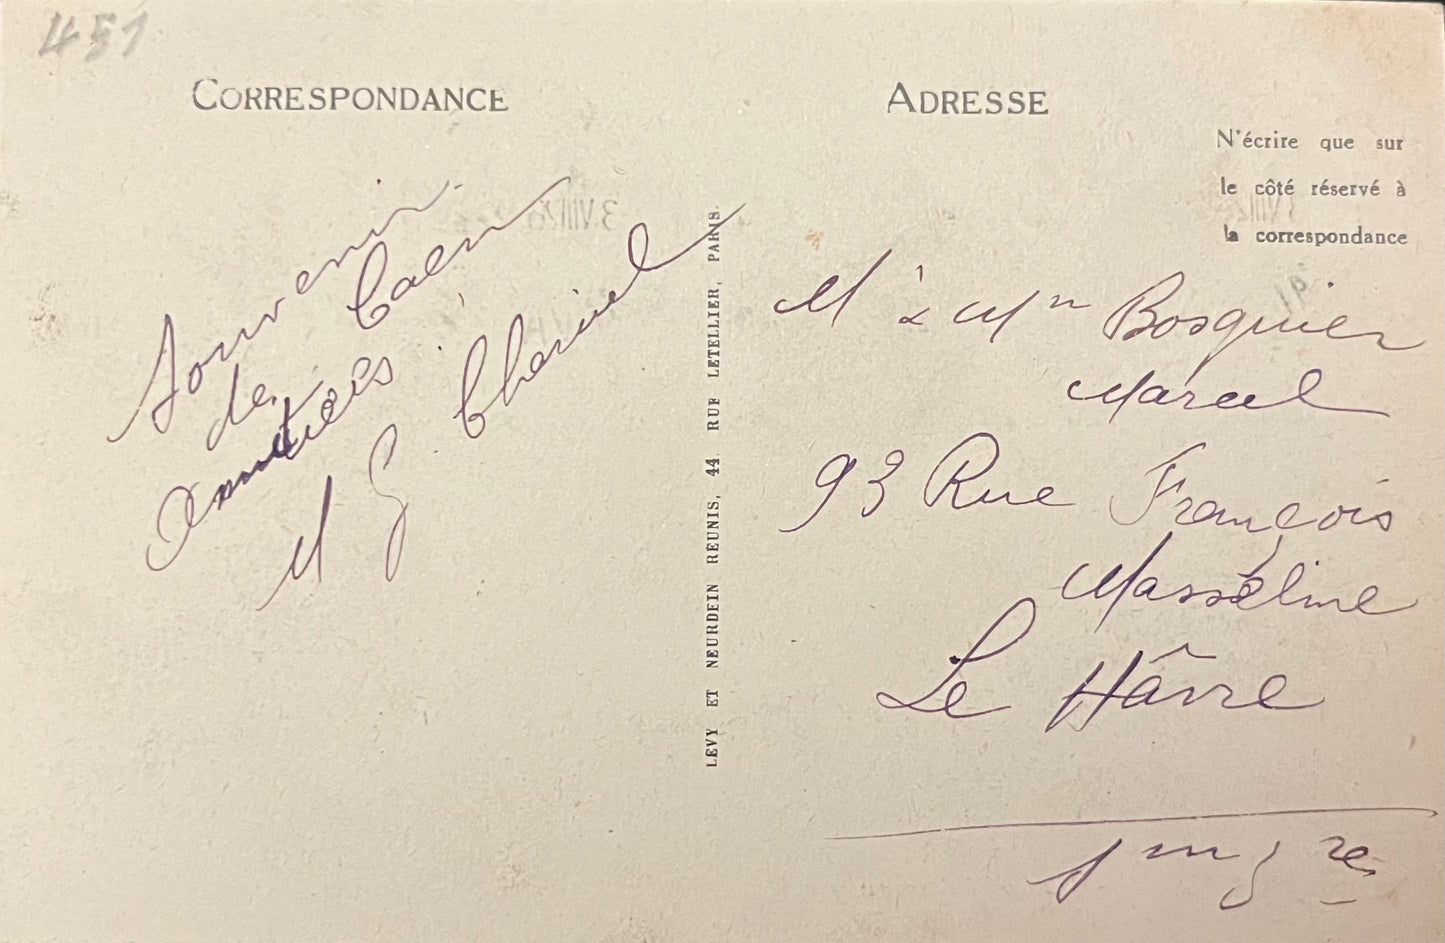 451
CORRESPONDANCE
Souvenir
de Caen
Amitiés
M G Cheruel
LEVY ET NEURDEIN REUNIS, 44 RUE LETELLIER, PARIS.
ADRESSE
N'écrire que sur
le côté réservé à
la correspondance
M r & Mm Bosquier
Marcel
93 Rue François
Masséline
Le Hâvre